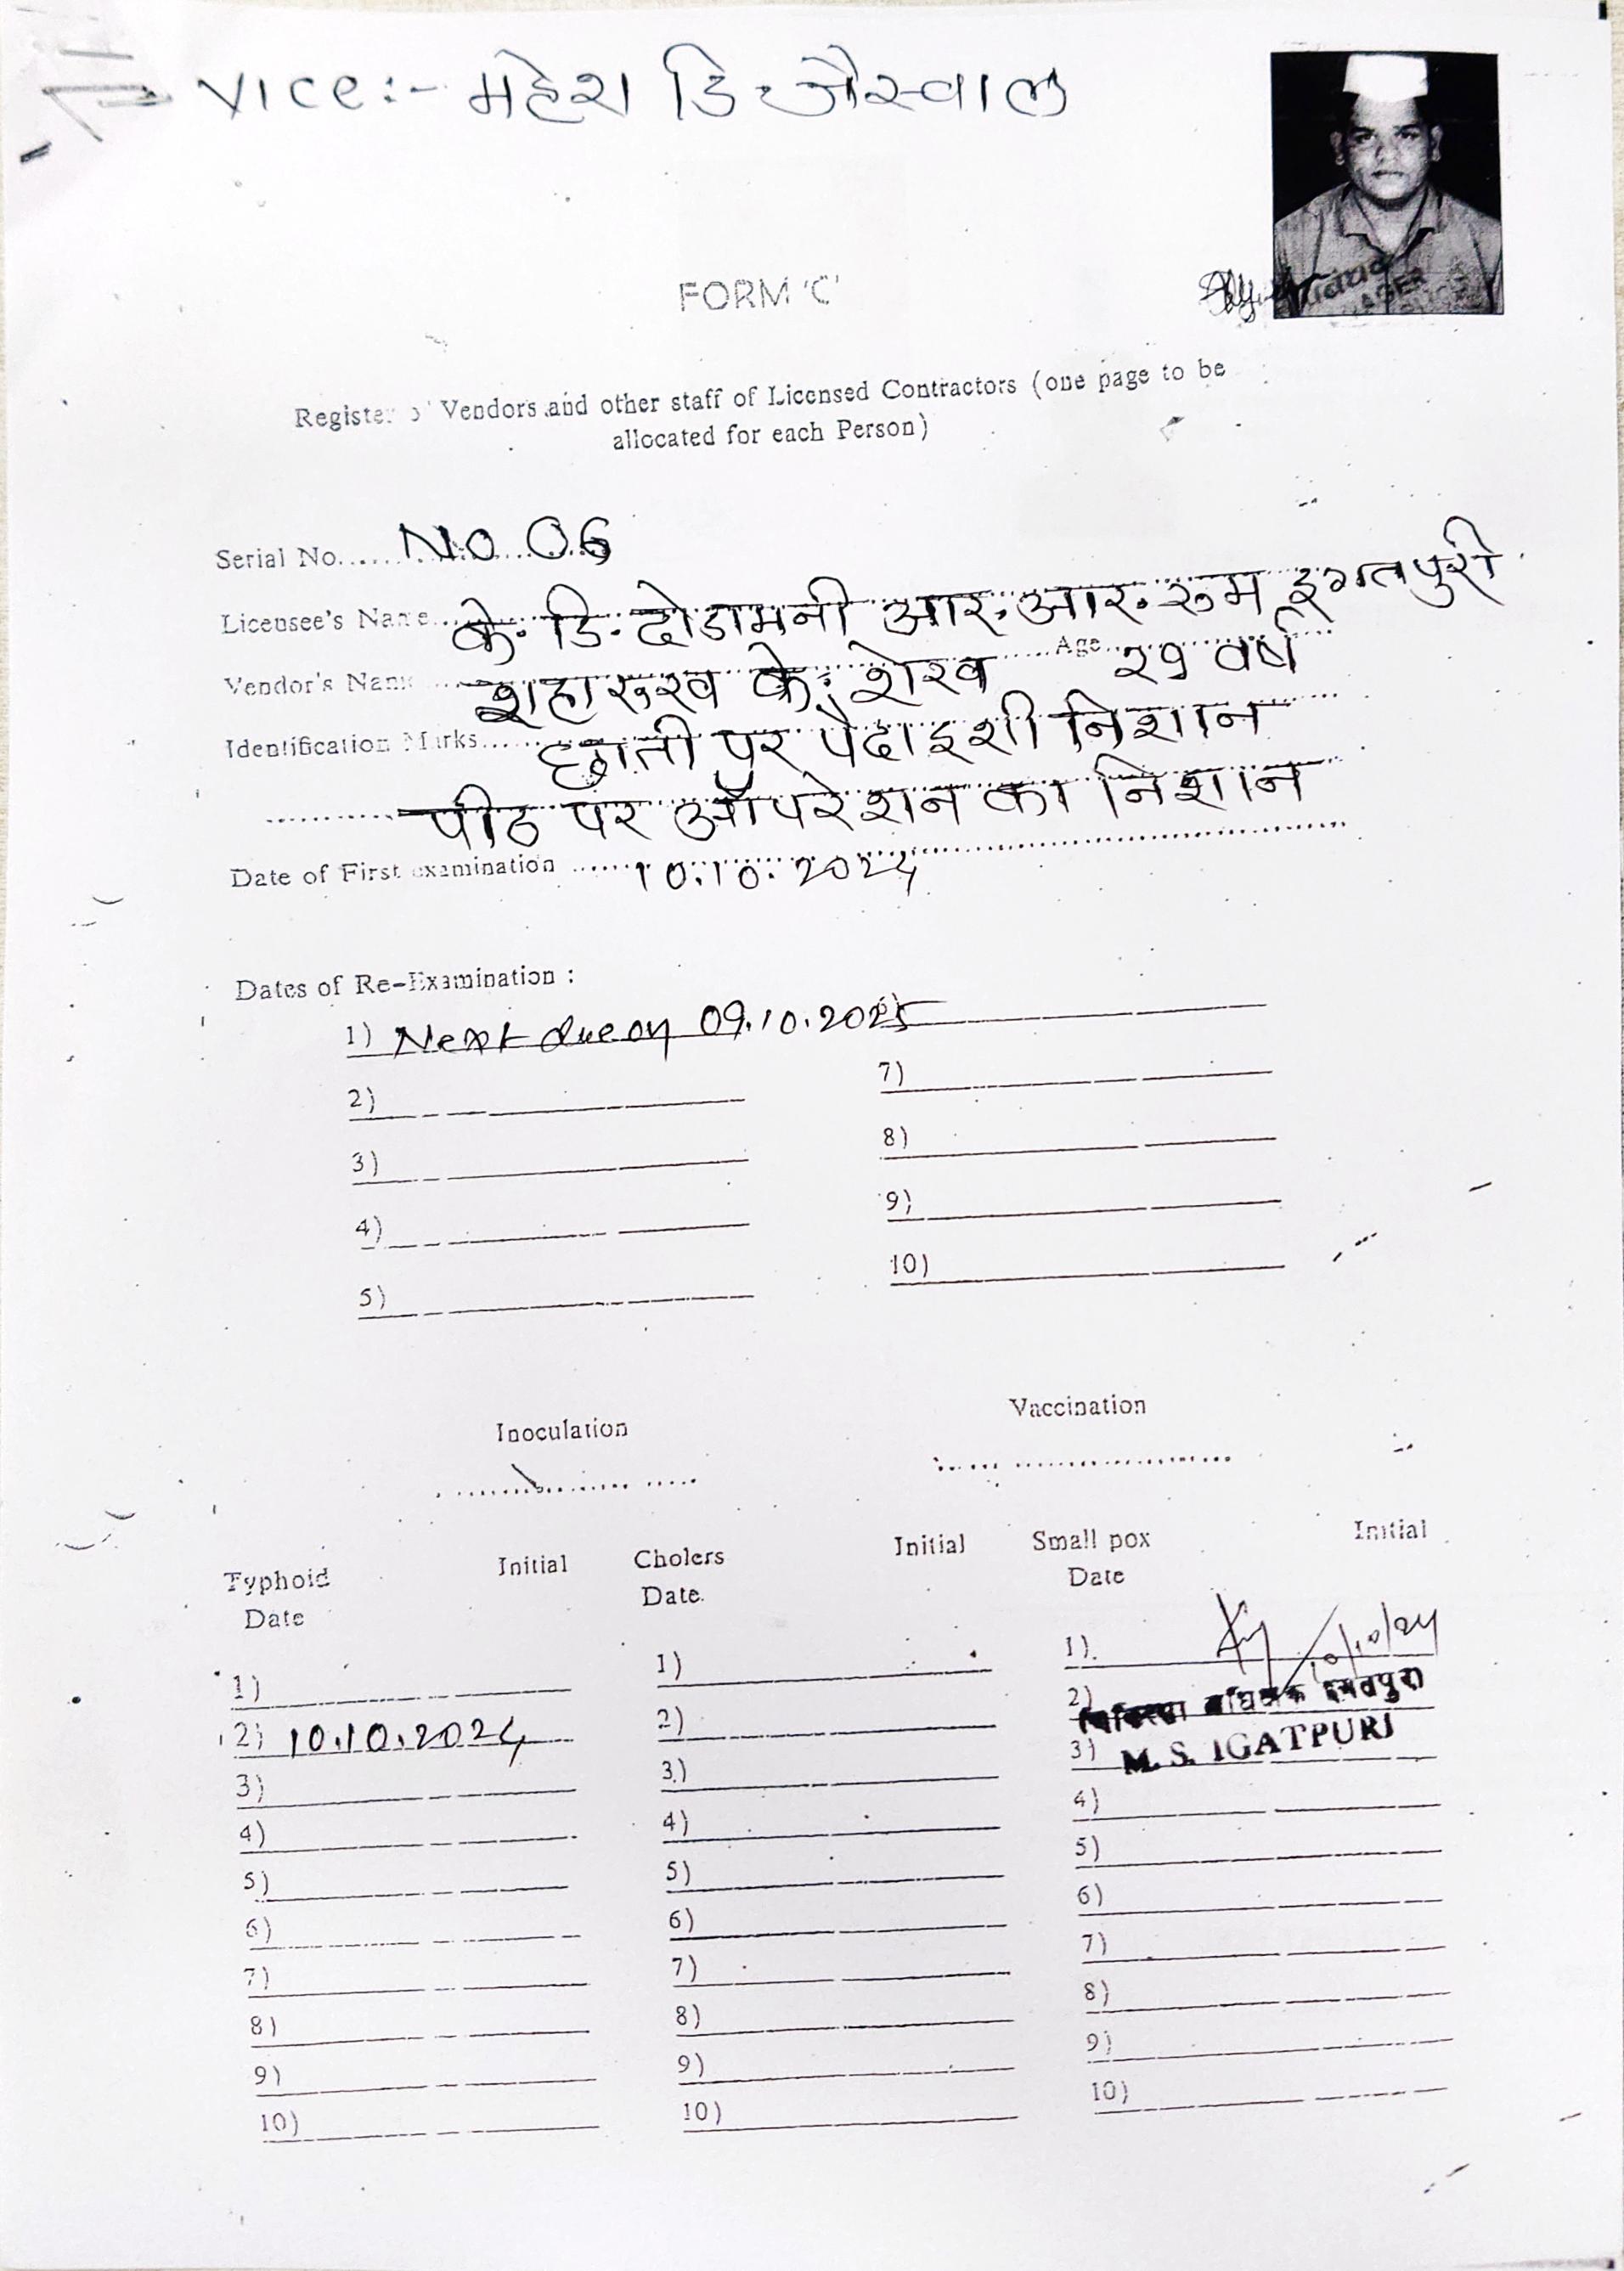 Vice:- महेश डि. जैस्वाल
FORM 'C'
Register of Vendors and other staff of Licensed Contractors (one page to be
allocated for each Person)
Serial No..... No 06
Licensee's Name... के. डि. दोडामनी आर. आर. रूम इगतपुरी
Vendor's Name ... शहारूख के. शेख ..... Age २९ वर्ष
Identification Marks... छाती पर पैदाइशी निशान
पीठ पर ऑपरेशन का निशान
Date of First examination ...... 10.10.2024
Dates of Re-Examination :
1) Next due on 09.10.2025
2)
7)
3)
8)
4)
9)
5)
10)
Inoculation Vaccination
Typhoid Initial Cholers Initial Small pox Initial
Date Date. Date
1) 1) 1). 10/10/24
2) 10.10.2024 2) 2) चिकित्सा अधिक्षक इगतपुरी
3) 3.) 3) M. S. IGATPURI
4) 4) 4)
5) 5) 5)
6) 6) 6)
7) 7) 7)
8) 8) 8)
9) 9) 9)
10) 10) 10)